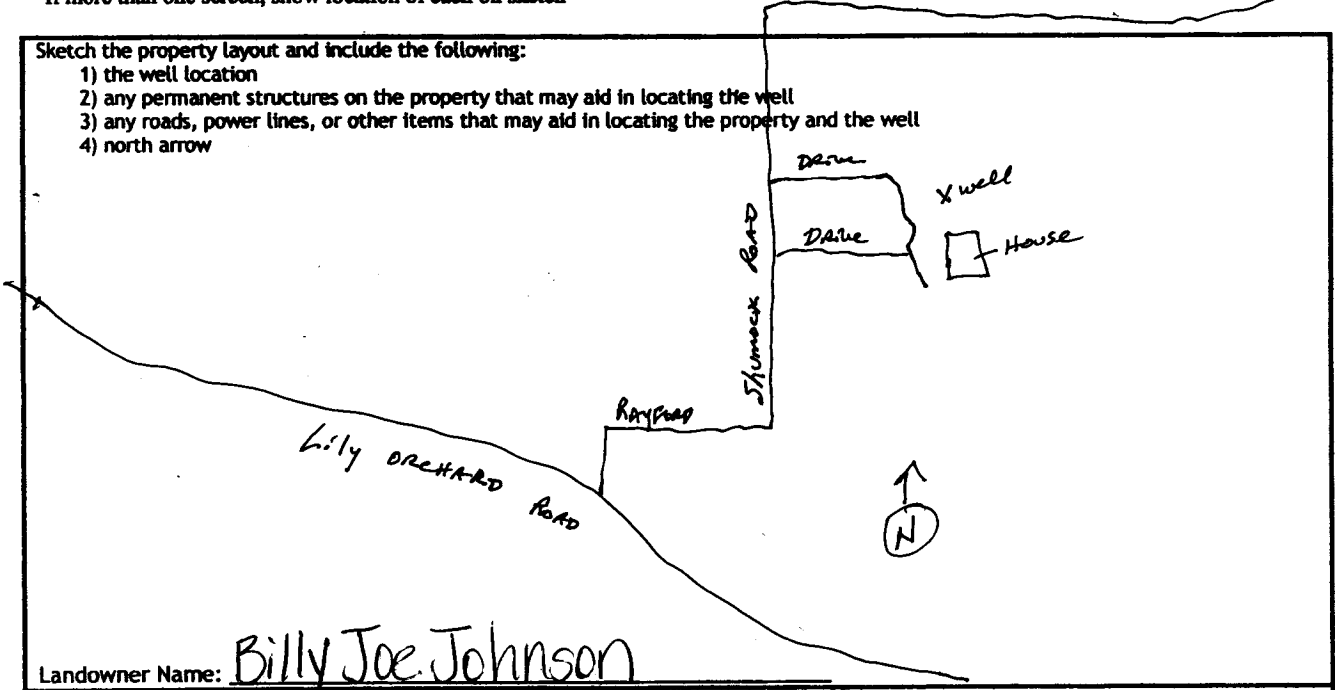 Sketch the property layout and include the following:
1) the well location
2) any permanent structures on the property that may aid in locating the well
3) any roads, power lines, or other items that may aid in locating the property and the well
4) north arrow
Drive
X well
Drive
House
Shumock Road
Rayford
Lily ORCHARD ROAD
N
Landowner Name: Billy Joe Johnson